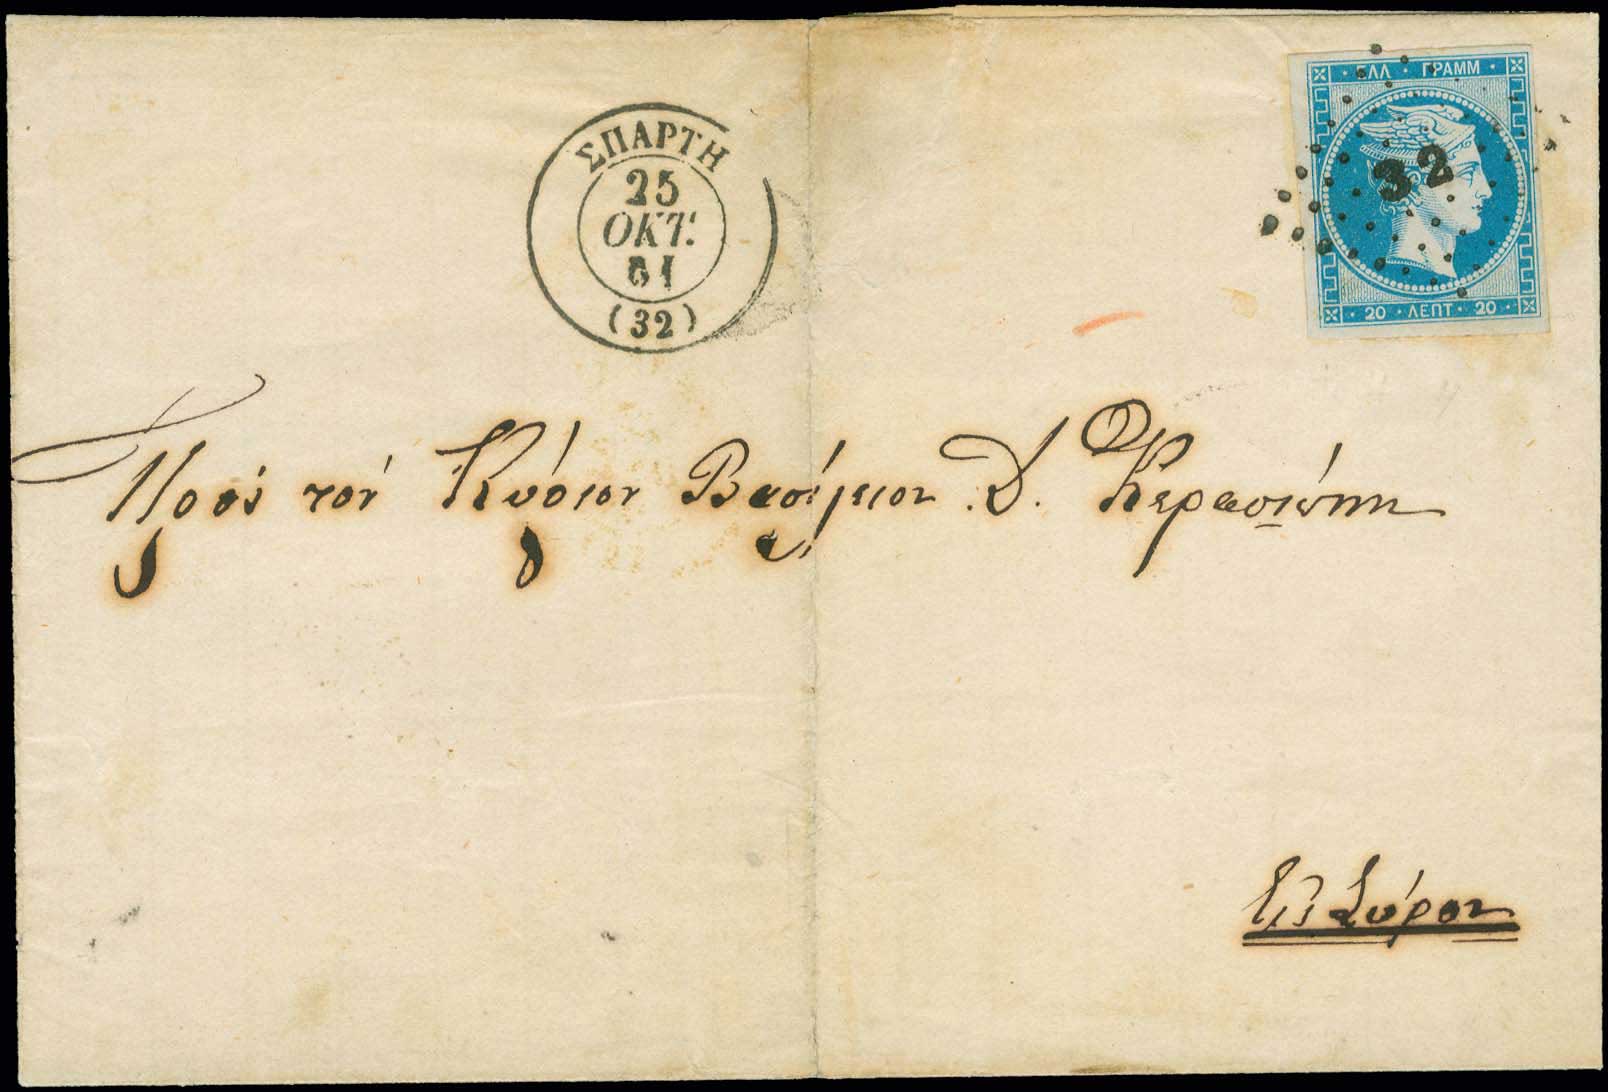 ΣΠΑΡΤΗ
25
ΟΚΤ.
61
(32)
ΕΛΛ · ΓΡΑΜΜ ·
32
20 · ΛΕΠΤ · 20
Πρὸς τὸν Κύριον Βασίλειον Δ. Κερασιώτην
Εἰς Σύρον